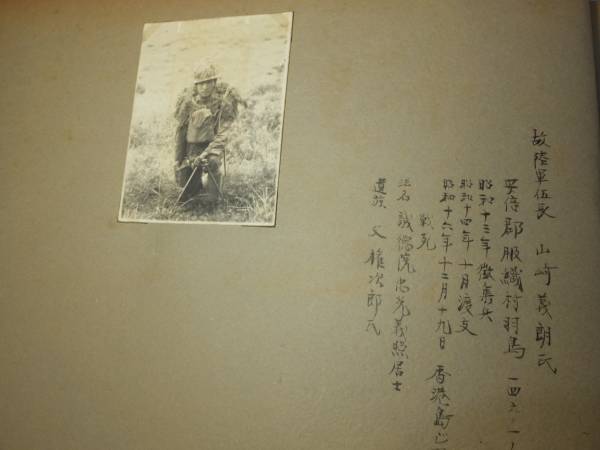 故陸軍伍長 山崎義朗氏
安倍郡服織村羽鳥 一四六ノ一
昭和十三年徴集兵
昭和十四年十月渡支
昭和十六年十二月十九日 香港島
戦死
法名 誠徳院忠光義照居士
遺族 父 権次郎氏